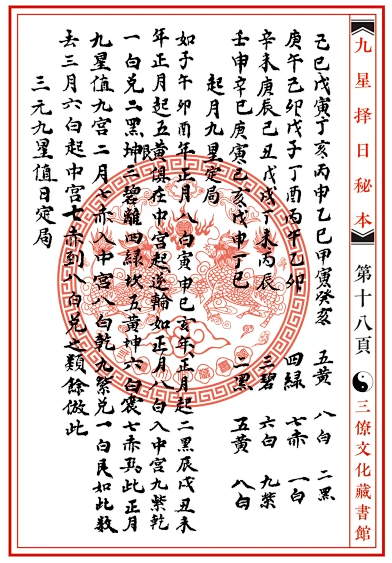 九星择日秘本 第十八頁 三僚文化藏書館
己巳戊寅丁亥丙申乙巳甲寅癸亥 五黄 八白 二黑
庚午己卯戊子丁酉丙午乙卯 四緑 七赤 一白
辛未庚辰己丑戊戌丁未丙辰 三碧 六白 九紫
壬申辛巳庚寅己亥戊申丁巳 二黑 五黄 八白
起月九星定局
如子午卯酉年正月八白寅申巳亥年正月起二黑辰戌丑未
年正月起五黄俱在中宫起逆輪如正月八白入中宫九紫乾
一白兑二黑坤三碧離四緑坎五黄坤六白震七赤巽此正月
九星值九宫二月七赤入中宫八白乾九紫兑一白艮如此数
去三月六白起中宫七赤到八白兑之類餘倣此
三元九星值日定局